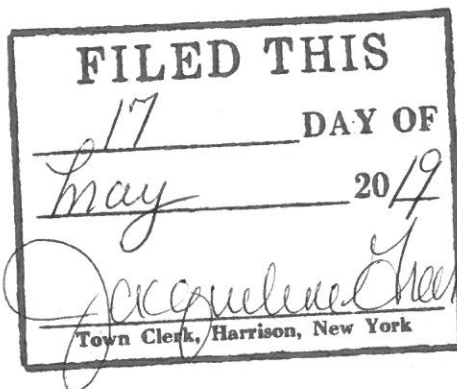 FILED THIS
17 DAY OF
May 2019
Jacqueline
Town Clerk, Harrison, New York